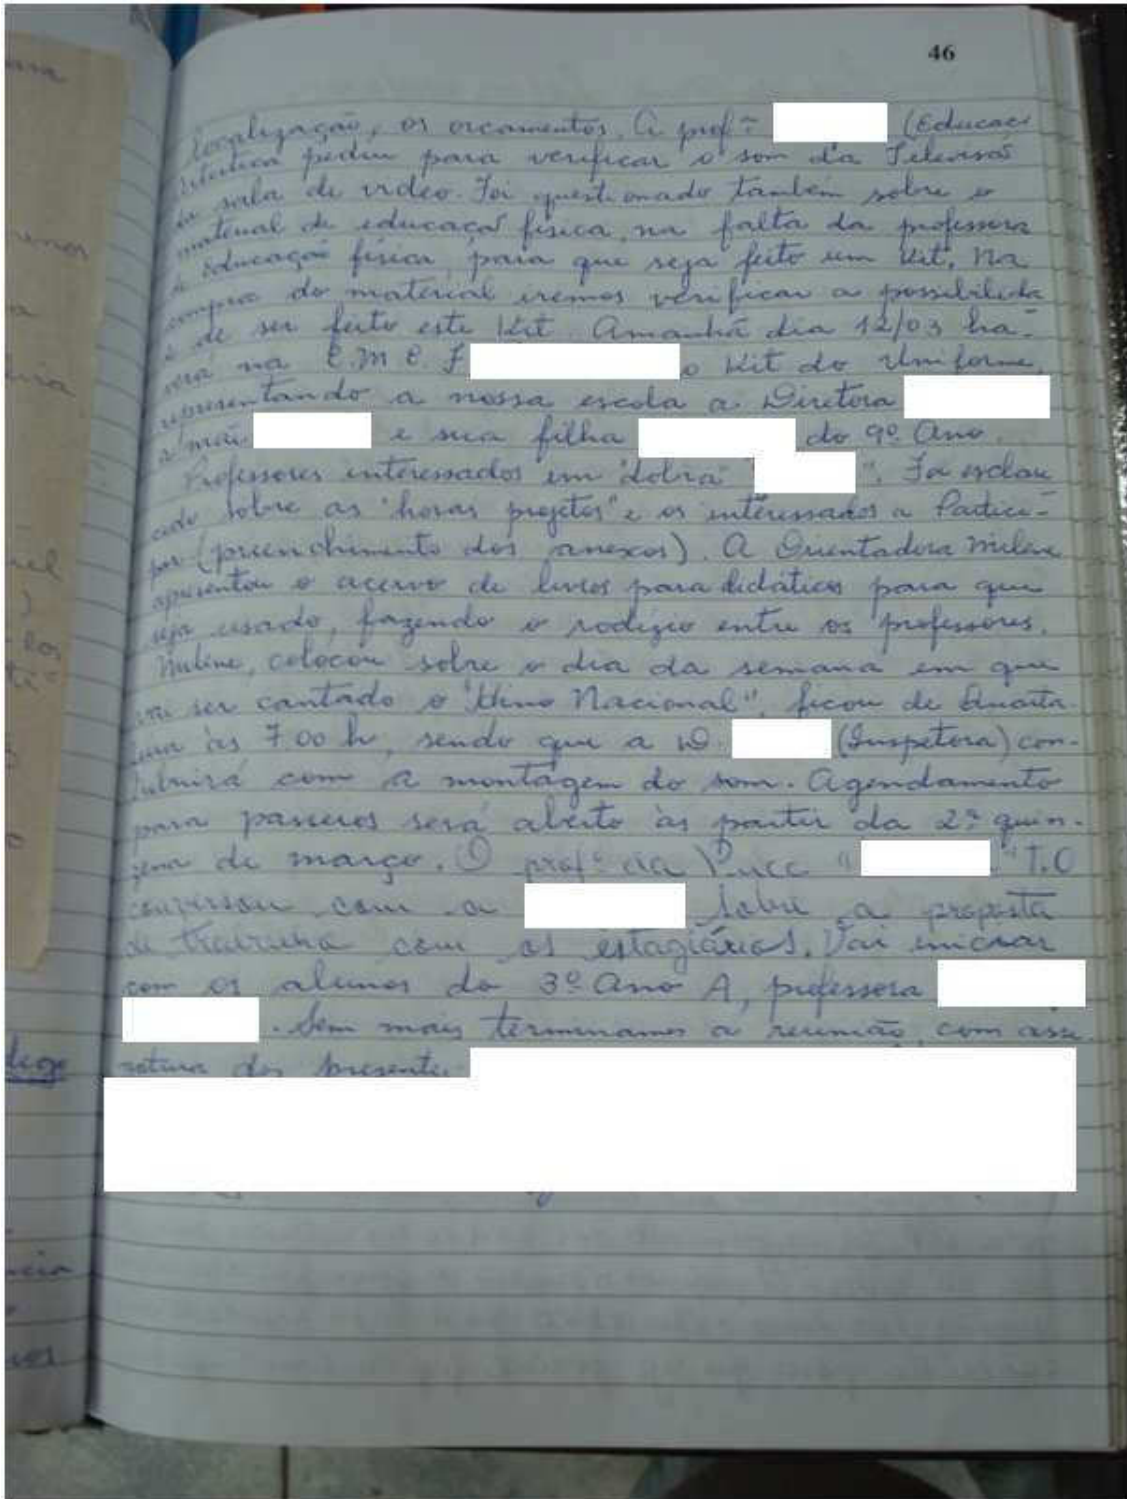 46
localização, os orcamentos. A profª (Educac
Artistica pediu para verificar o som da Televisã
da sala de video. Foi questionado também sobre o
material de educaçã fisica, na falta da professora
de educação fisica, para que seja feito um Kit. Na
compra do material iremos verificar a possibilida
e de ser feito este Kit. Amanhã dia 12/03 ha-
verá na E.M.E.F o Kit do Uniforme,
representando a nossa escola a Diretora
a mãe e sua filha do 9º Ano.
Professores interessados em "dobra" ". Foi esclare
cido sobre as "horas projetos" e os interessados a Partici-
par (preenchimento dos anexos). A Orientadora Milene
apresentou o acervo de livros para didáticos para que
seja usado, fazendo o rodizio entre os professores.
Milene, colocou sobre o dia da semana em que
vai ser cantado o "Hino Nacional", ficou de Quarta
feira às 7:00 h, sendo que a D. (Inspetora) con-
tribuirá com a montagem do som. Agendamento
para passeios será aberto às partir da 2ª quin-
zena de março. O profº da Pucc " " T.O
conversou com a sobre a proposta
de trabalho com os estagiários. Vai iniciar
com os alunos do 3º Ano A, professora
. Sem mais terminamos a reunião, com assi
natura dos presente.
dige